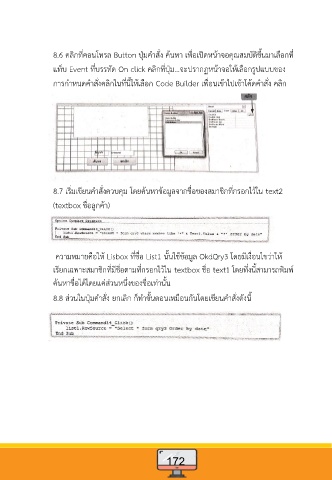 8.6 คลิกที่คอนโทรล Button ปุ่มคำสั่ง ค้นหา เพื่อเปิดหน้าจอคุณสมบัติขึ้นมาเลือกที่
แท็บ Event ที่บรรทัด On click คลิกที่ปุ่ม...จะปรากฏหน้าจอให้เลือกรูปแบบของ
การกำหนดคำสั่งคลิกในที่นี้ให้เลือก Code Builder เพื่อนเข้าไปเข้าโค้ดคำสั่ง คลิก
8.7 เริ่มเขียนคำสั่งควบคุม โดยค้นหาข้อมูลจากชื่อของสมาชิกที่กรอกไว้ใน text2
(textbox ชื่อลูกค้า)
Private Sub Command3_Click()
End Sub
ความหมายคือให้ Lisbox ที่ชื่อ List1 นั้นใช้ข้อมูล OkdQry3 โดยมีเงื่อนไขว่าให้
เรียกเฉพาะสมาชิกที่มีชื่อตามที่กรอกไว้ใน textbox ชื่อ text1 โดยที่งนี้สามารถพิมพ์
ค้นหาชื่อได้โดยแค่ส่วนหนึ่งของชื่อเท่านั้น
8.8 ส่วนในปุ่มคำสั่ง ยกเลิก ก็ทำขั้นตอนเหมือนกันโดยเขียนคำสั่งดังนี้
Private Sub Command4_Click()
list1.RowSource = "Select * form qry3 order by date"
End Sub
172